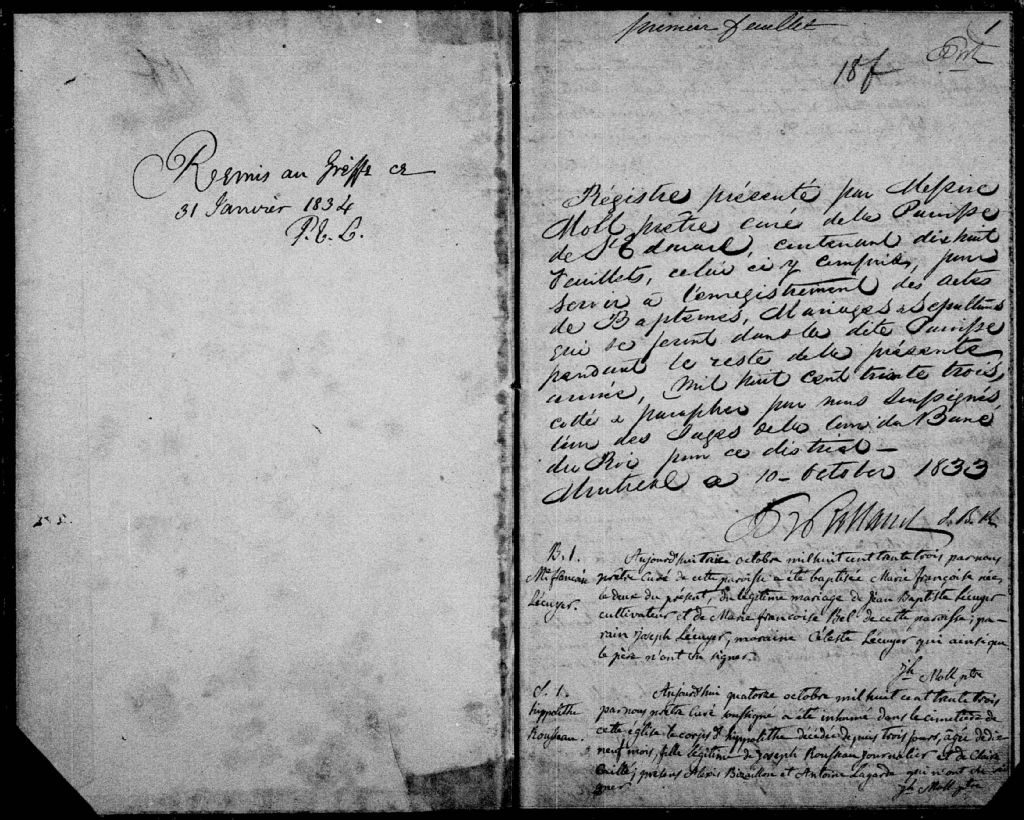 Remis au Greffe ce
31 Janvier 1834
P. & L.
premier feuillet
1
18 f
Régistre présenté par Messire
Moll prêtre curé de la Paroisse
de St Edouard, contenant dixhuit
feuillets, celui ci y compris, pour
servir à l'enregistrement des actes
de Baptemes, Mariages & Sepultures
qui se feront dans la dite Paroisse
pendant le reste de la présente
année, mil huit cent trente trois,
cotté & paraphée par nous Soussignés
l'un des Juges de la Cour du Banc
du Roi pour ce district —
Montreal ce 10 - October 1833
J. B. R.
B. 1.
Mie françoise
Lécuyer.
Aujourd'hui treize octobre mil huit cent trente trois par nous
prêtre curé de cette paroisse a été baptisée Marie françoise née
le deux du présent, du légitime mariage de Jean Baptiste Lécuyer
cultivateur et de Marie francoise Bel de cette paroisse; pa-
rain Joseph Lécuyer, maraine Céleste Lécuyer qui ainsi que
le père n'ont su signer.
Jh Moll ptre
S. 1.
hippolithe
Rousseau.
Aujourd'hui quatorze octobre mil huit cent trente trois
par nous prêtre curé soussigné a été inhumé dans le cimetière de
cette église le corps d'hippolithe décédée depuis trois jours, agée de dix
neuf mois, fille légitime de Joseph Rousseau journalier et de Claire
Caillé; présens Alexis Bizaillon et Antoine Lagarde qui n'ont su si-
gner
Jh Moll ptre